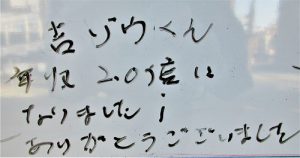 吉ゾウくん
年収2.0倍に
なりました！
ありがとうございました